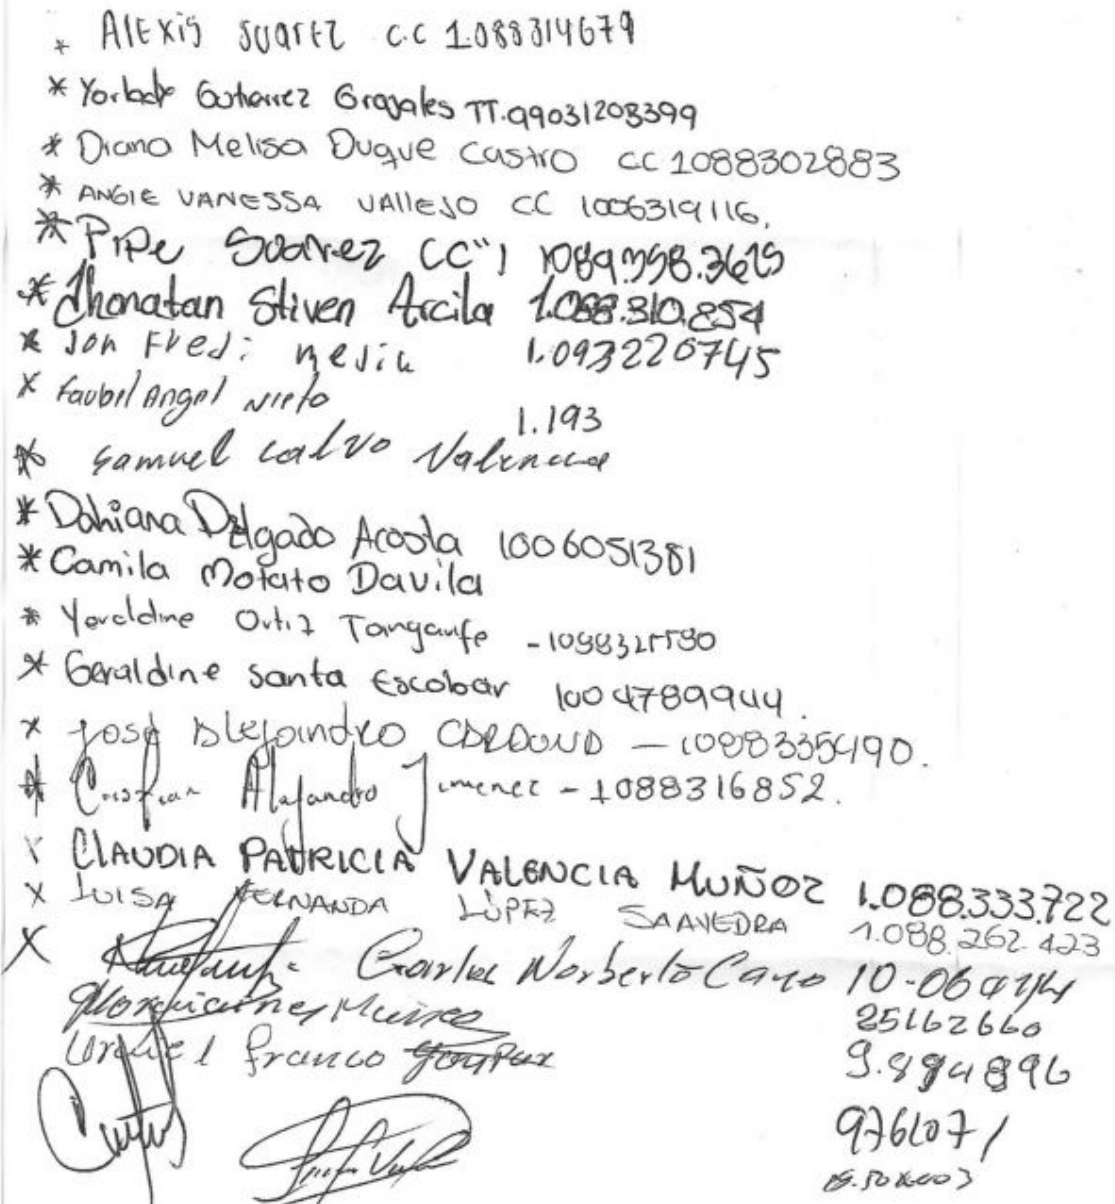 * Alexis Suarez C.C 1.088314679
* Gutierrez Grajales TI.99031208399
* Diana Melisa Duque Castro CC 1088302883
* ANGIE VANESSA VALLEJO CC 1006319116.
* Pipe Suarez CC"1
* Jhonatan Stiven Arcila 1.088.310.854
* Jon Fredi 1.093220745
* Faubel Angel Nieto
1.193
* Samuel Calvo Valencia
* Dahiana Delgado Acosta 1006051381
* Camila Motato Davila
* Yeraldine Ortiz
* Geraldine Santa Escobar 1004789944.
* José Alejandro CARDONA - 1088335490.
* Cristian Alejandro Jimenez - 1088316852.
x CLAUDIA PATRICIA VALENCIA MUÑOZ 1.088.333.722
x LUISA FERNANDA LÓPEZ SAAVEDRA 1.088.262.423
x Carlos Norberto Cano
25162660
Franco 9.894896
9761071